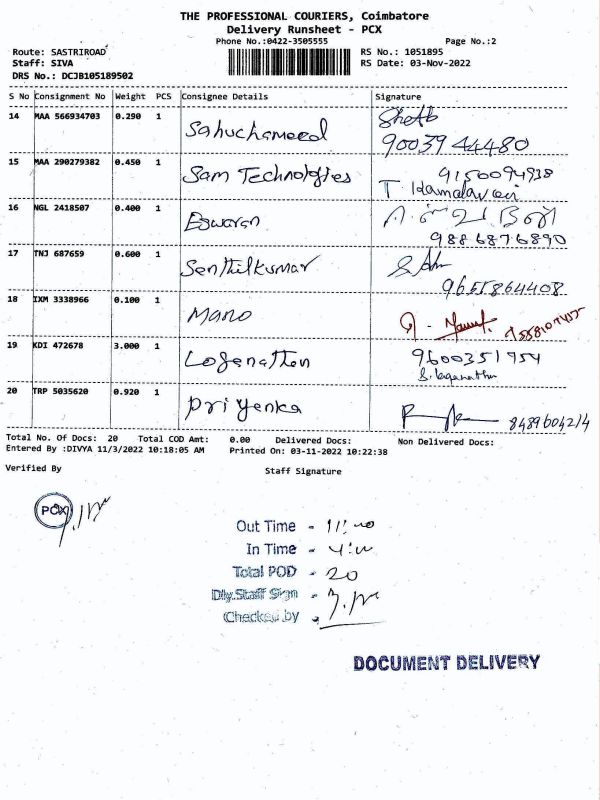 THE PROFESSIONAL COURIERS, Coimbatore
Delivery Runsheet - PCX
Phone No.:0422-3505555 Page No.:2
Route: SASTRIROAD RS No.: 1051895
Staff: SIVA RS Date: 03-Nov-2022
DRS No.: DCJB105189502
S No Consignment No Weight PCS Consignee Details Signature
14 MAA 566934703 0.290 1 Sahuchameed
9003944480
15 MAA 290279382 0.450 1 Sam Technologies 9150094938
16 NGL 2418507 0.400 1 Eswaran
9886876890
17 TNJ 687659 0.600 1 Senthilkumar
9655864408
18 IXM 3338966 0.100 1 Mano
19 KDI 472678 3.000 1 Logenathan 9600351954
20 TRP 5035620 0.920 1 Priyenka 8489604214
Total No. Of Docs: 20 Total COD Amt: 0.00 Delivered Docs: Non Delivered Docs:
Entered By :DIVYA 11/3/2022 10:18:05 AM Printed On: 03-11-2022 10:22:38
Verified By Staff Signature
PCX
Out Time - 11:00
In Time - 4:00
Total POD - 20
Dly.Staff Sign -
Checked by -
DOCUMENT DELIVERY